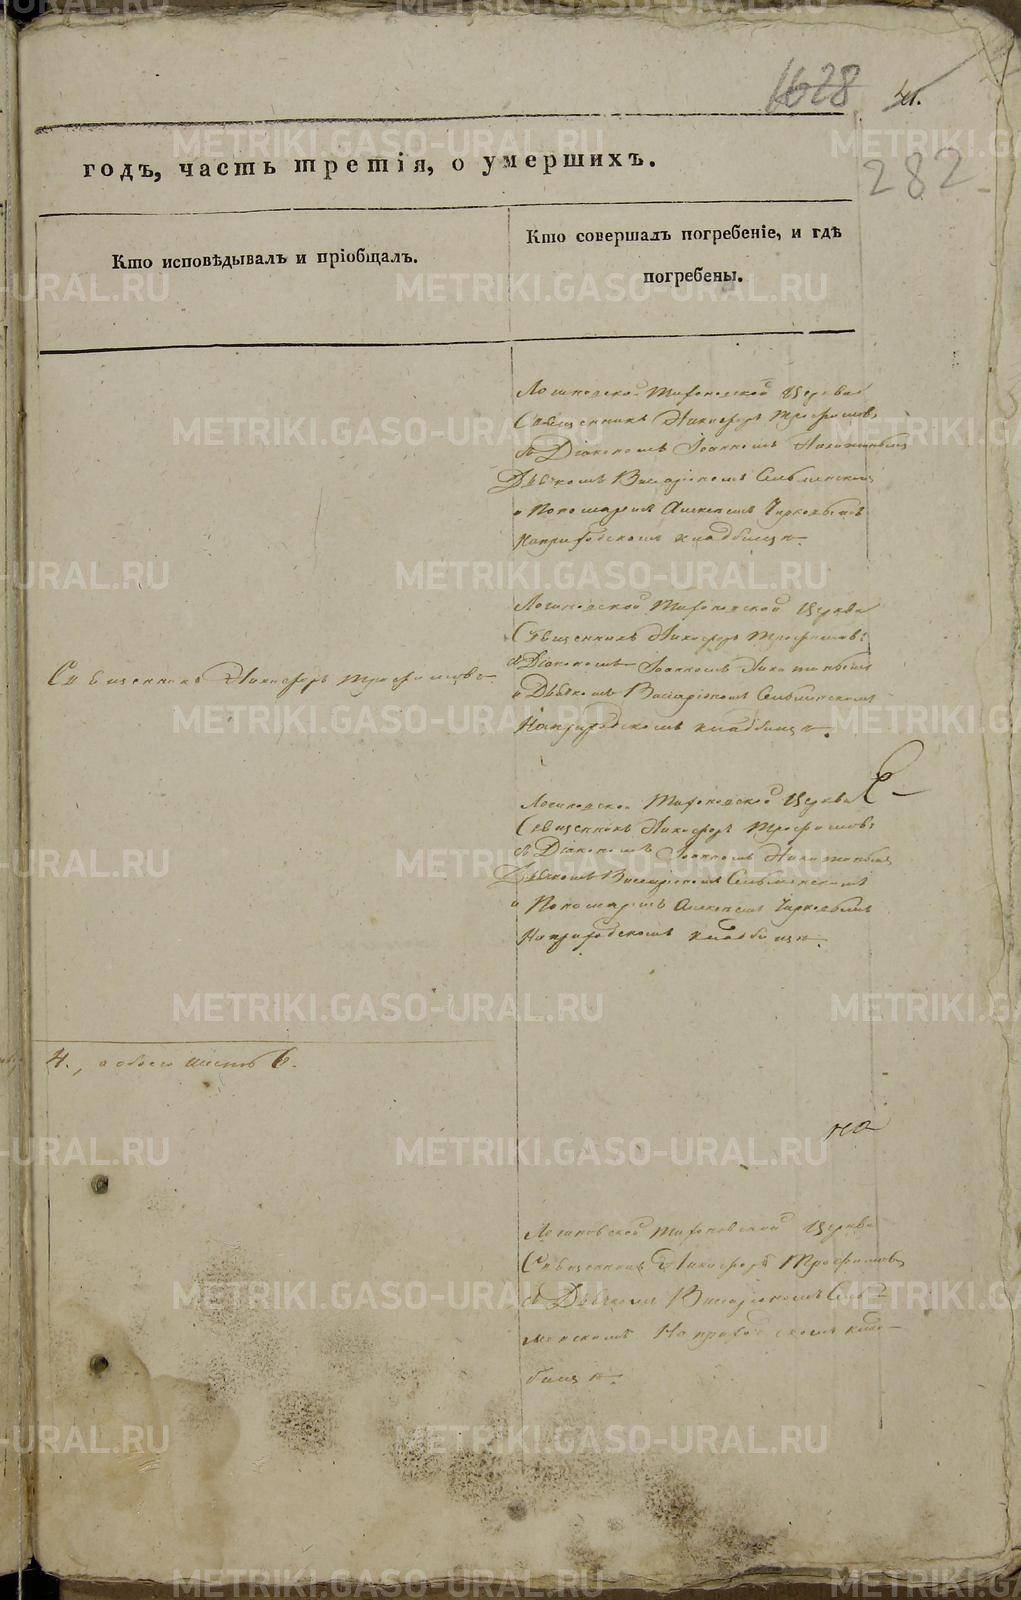 1628
41.
282
годъ, часть третія, о умершихъ.
Кто исповѣдывалъ и пріобщалъ.
Кто совершалъ погребеніе, и гдѣ
погребены.
Логиновской Тихоновской Церкви
Священникъ Никифоръ Трофимовъ
съ Діакономъ Іоанномъ Никитинымъ
Дьячкомъ Висаріономъ Сельменскимъ
и Пономаремъ Алексеемъ Чирковымъ
На приходскомъ кладбищѣ.
Логиновской Тихоновской Церкви
Священникъ Никифоръ Трофимовъ
съ Діакономъ Іоанномъ Никитинымъ
и Дьячкомъ Висаріономъ Сельменскимъ
На приходскомъ кладбищѣ.
Священникъ Никифоръ Трофимовъ.
Логиновской Тихоновской Церкви
Священникъ Никифоръ Трофимовъ
съ Діакономъ Іоанномъ Никитинымъ
Дьячкомъ Висаріономъ Сельменскимъ
и Пономаремъ Алексеемъ Чирковымъ
На приходскомъ кладбищѣ.
4., а обоего шесть 6.
на
Логиновской Тихоновской Церкви
Священникъ Никифоръ Трофимовъ
съ Дьячкомъ Висаріономъ Сель-
менскимъ На приходскомъ клад-
бищѣ.
METRIKI.GASO-URAL.RU